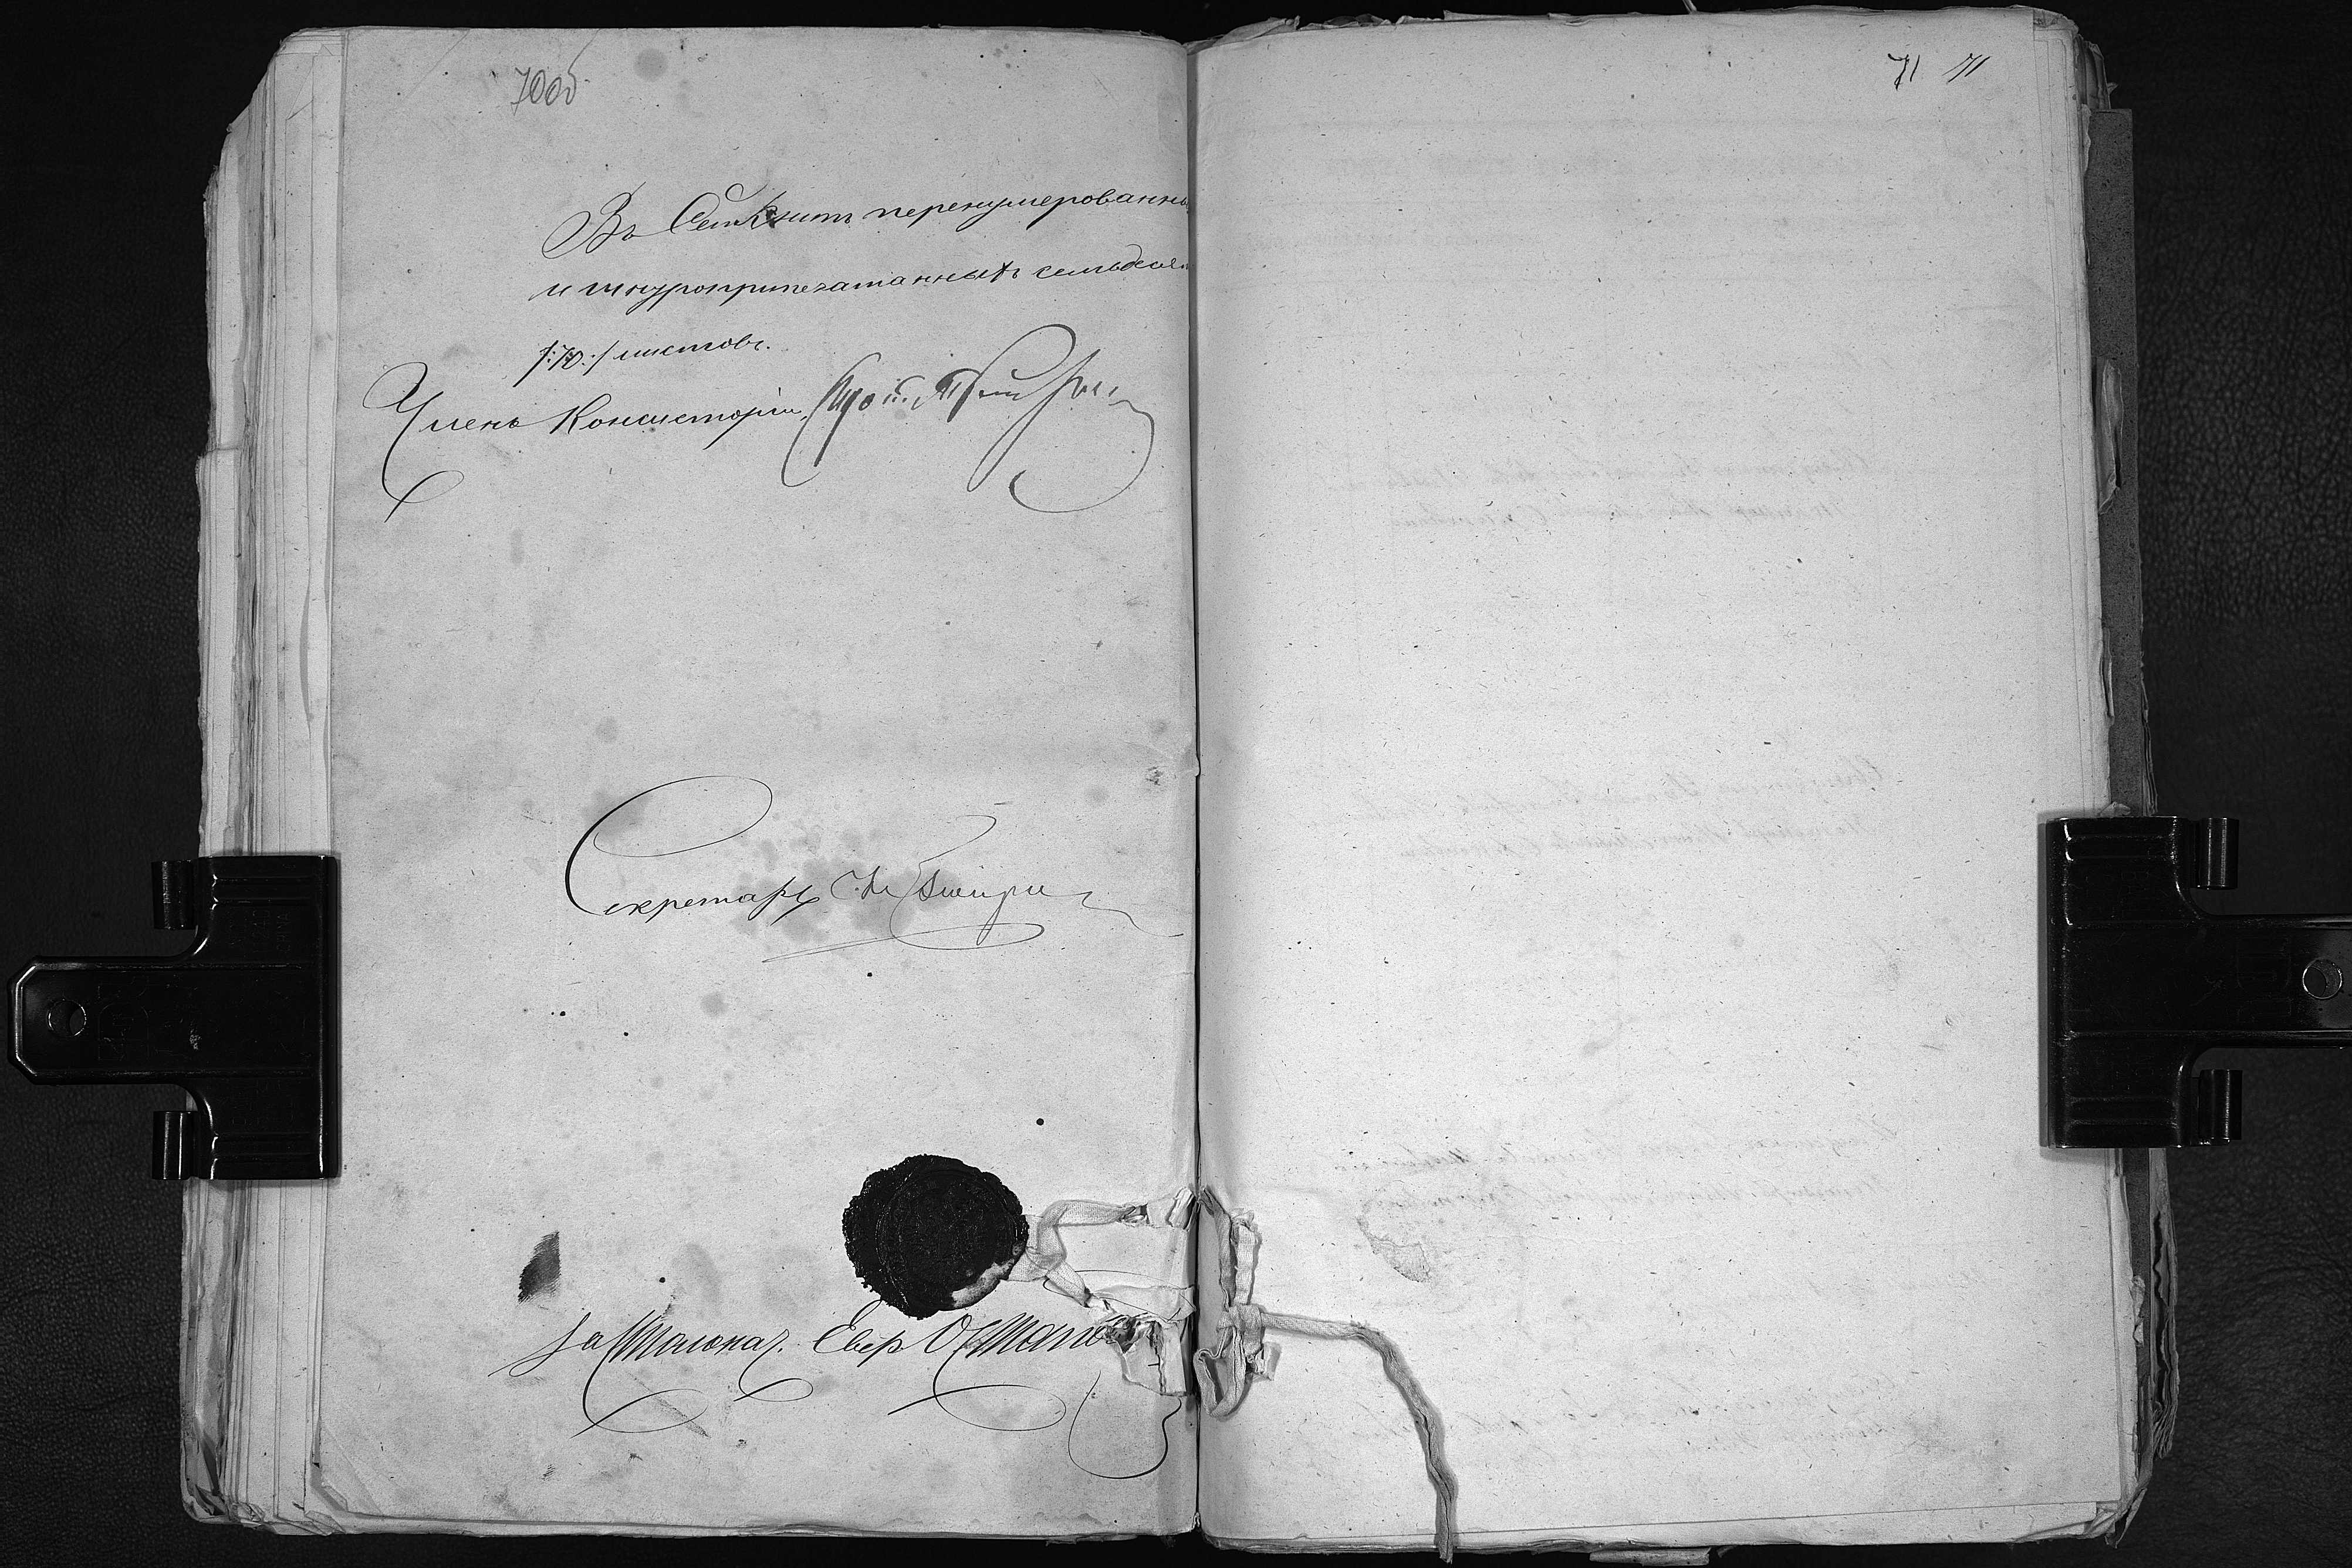 70об
Въ сей книгѣ перенумерованны
и шнуроприпечатанныхъ семьдеся
/:70:/ листовъ.
Членъ Консисторіи,
Секретарь
За Столонач.
71 71